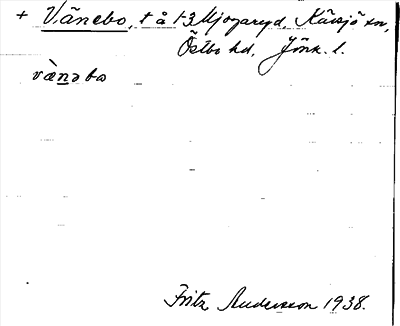 + Vänebo, t å 1-3 Mjogaryd, Kävsjö sn,
Östbo hd, Jönk. l.
vænəbo
Fritz Andersson 1938.